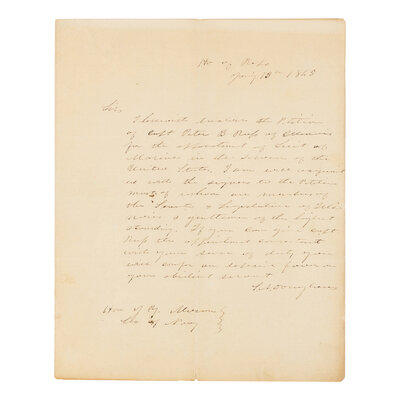 Ho of Reps
Jany 13th 1845
Sir
I herewith enclose the Petition
of Capt Peter B Ross of Illinois
for the appointment of Lieut of
Marines in the service of the
United States. I am well acquaint
ed with the signers to the Petition
most of whom are members of
the Senate & Legislature of Illi
nois & gentlemen of the highest
standing. If you can give Capt
Ross the appointment consistent
with your sense of duty you
will confer an especial favor on
your obedient servant
S. A. Douglass
Hon J Y Mason
Sec of Navy